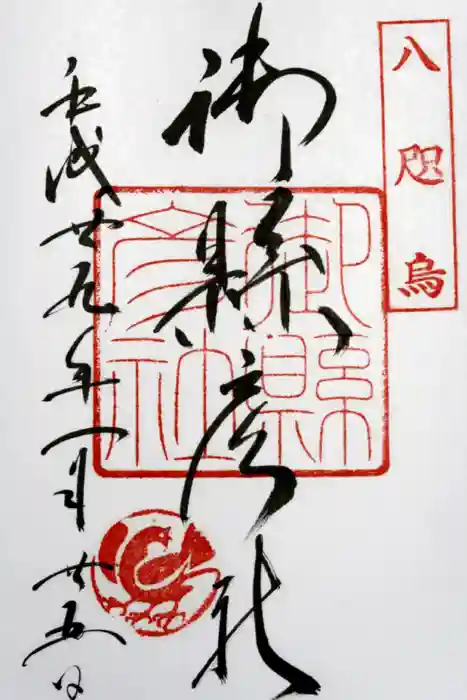 八咫烏
御縣彦社
平成廿九年一月廿五日
御縣彦社